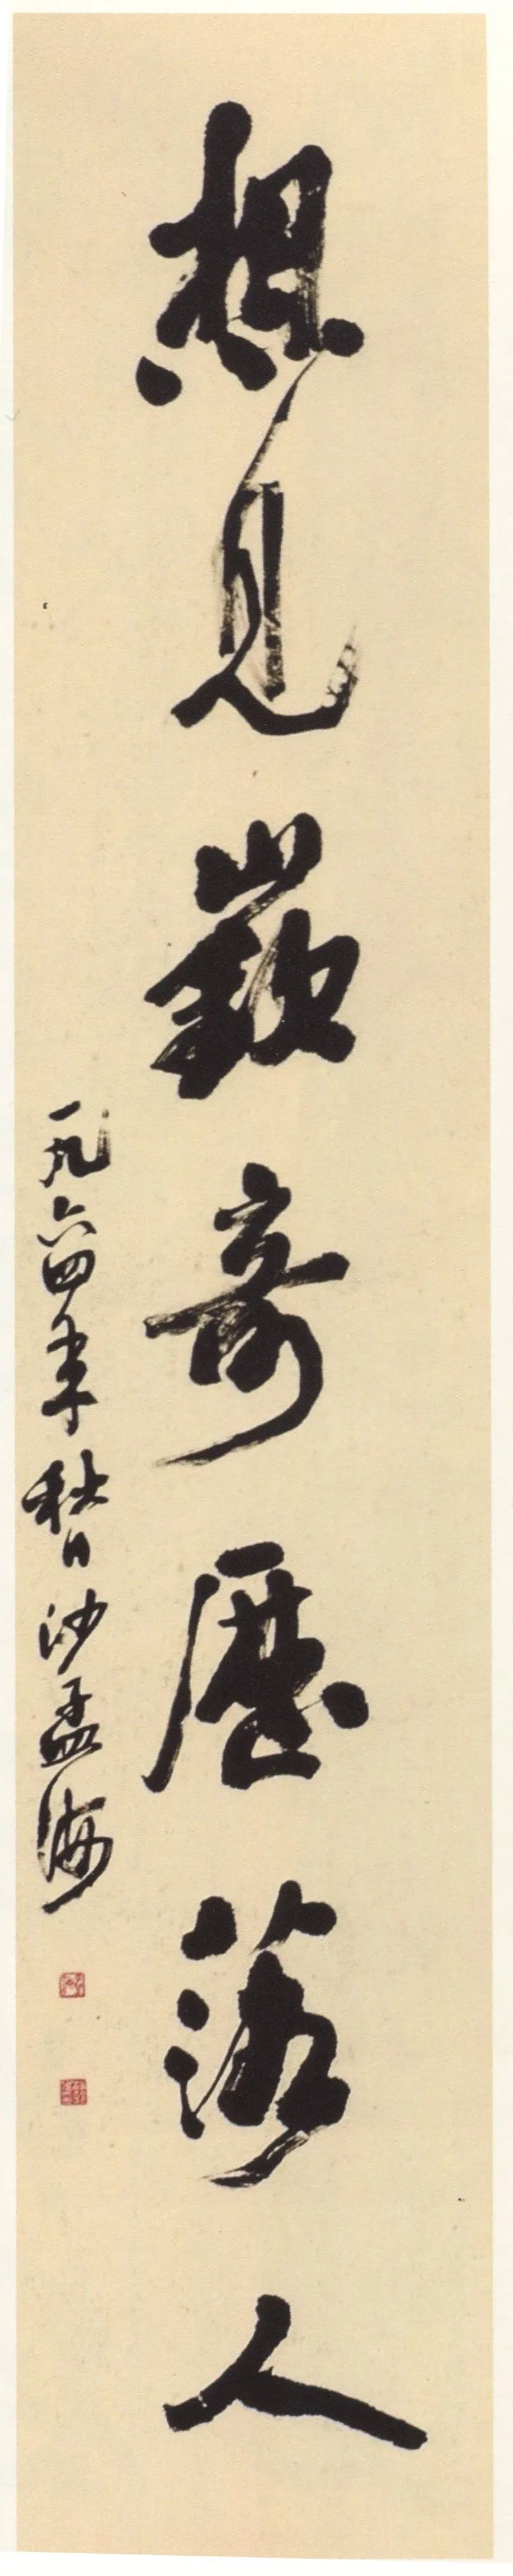 想見嶔奇歷落人
一九六四年秋日沙孟海